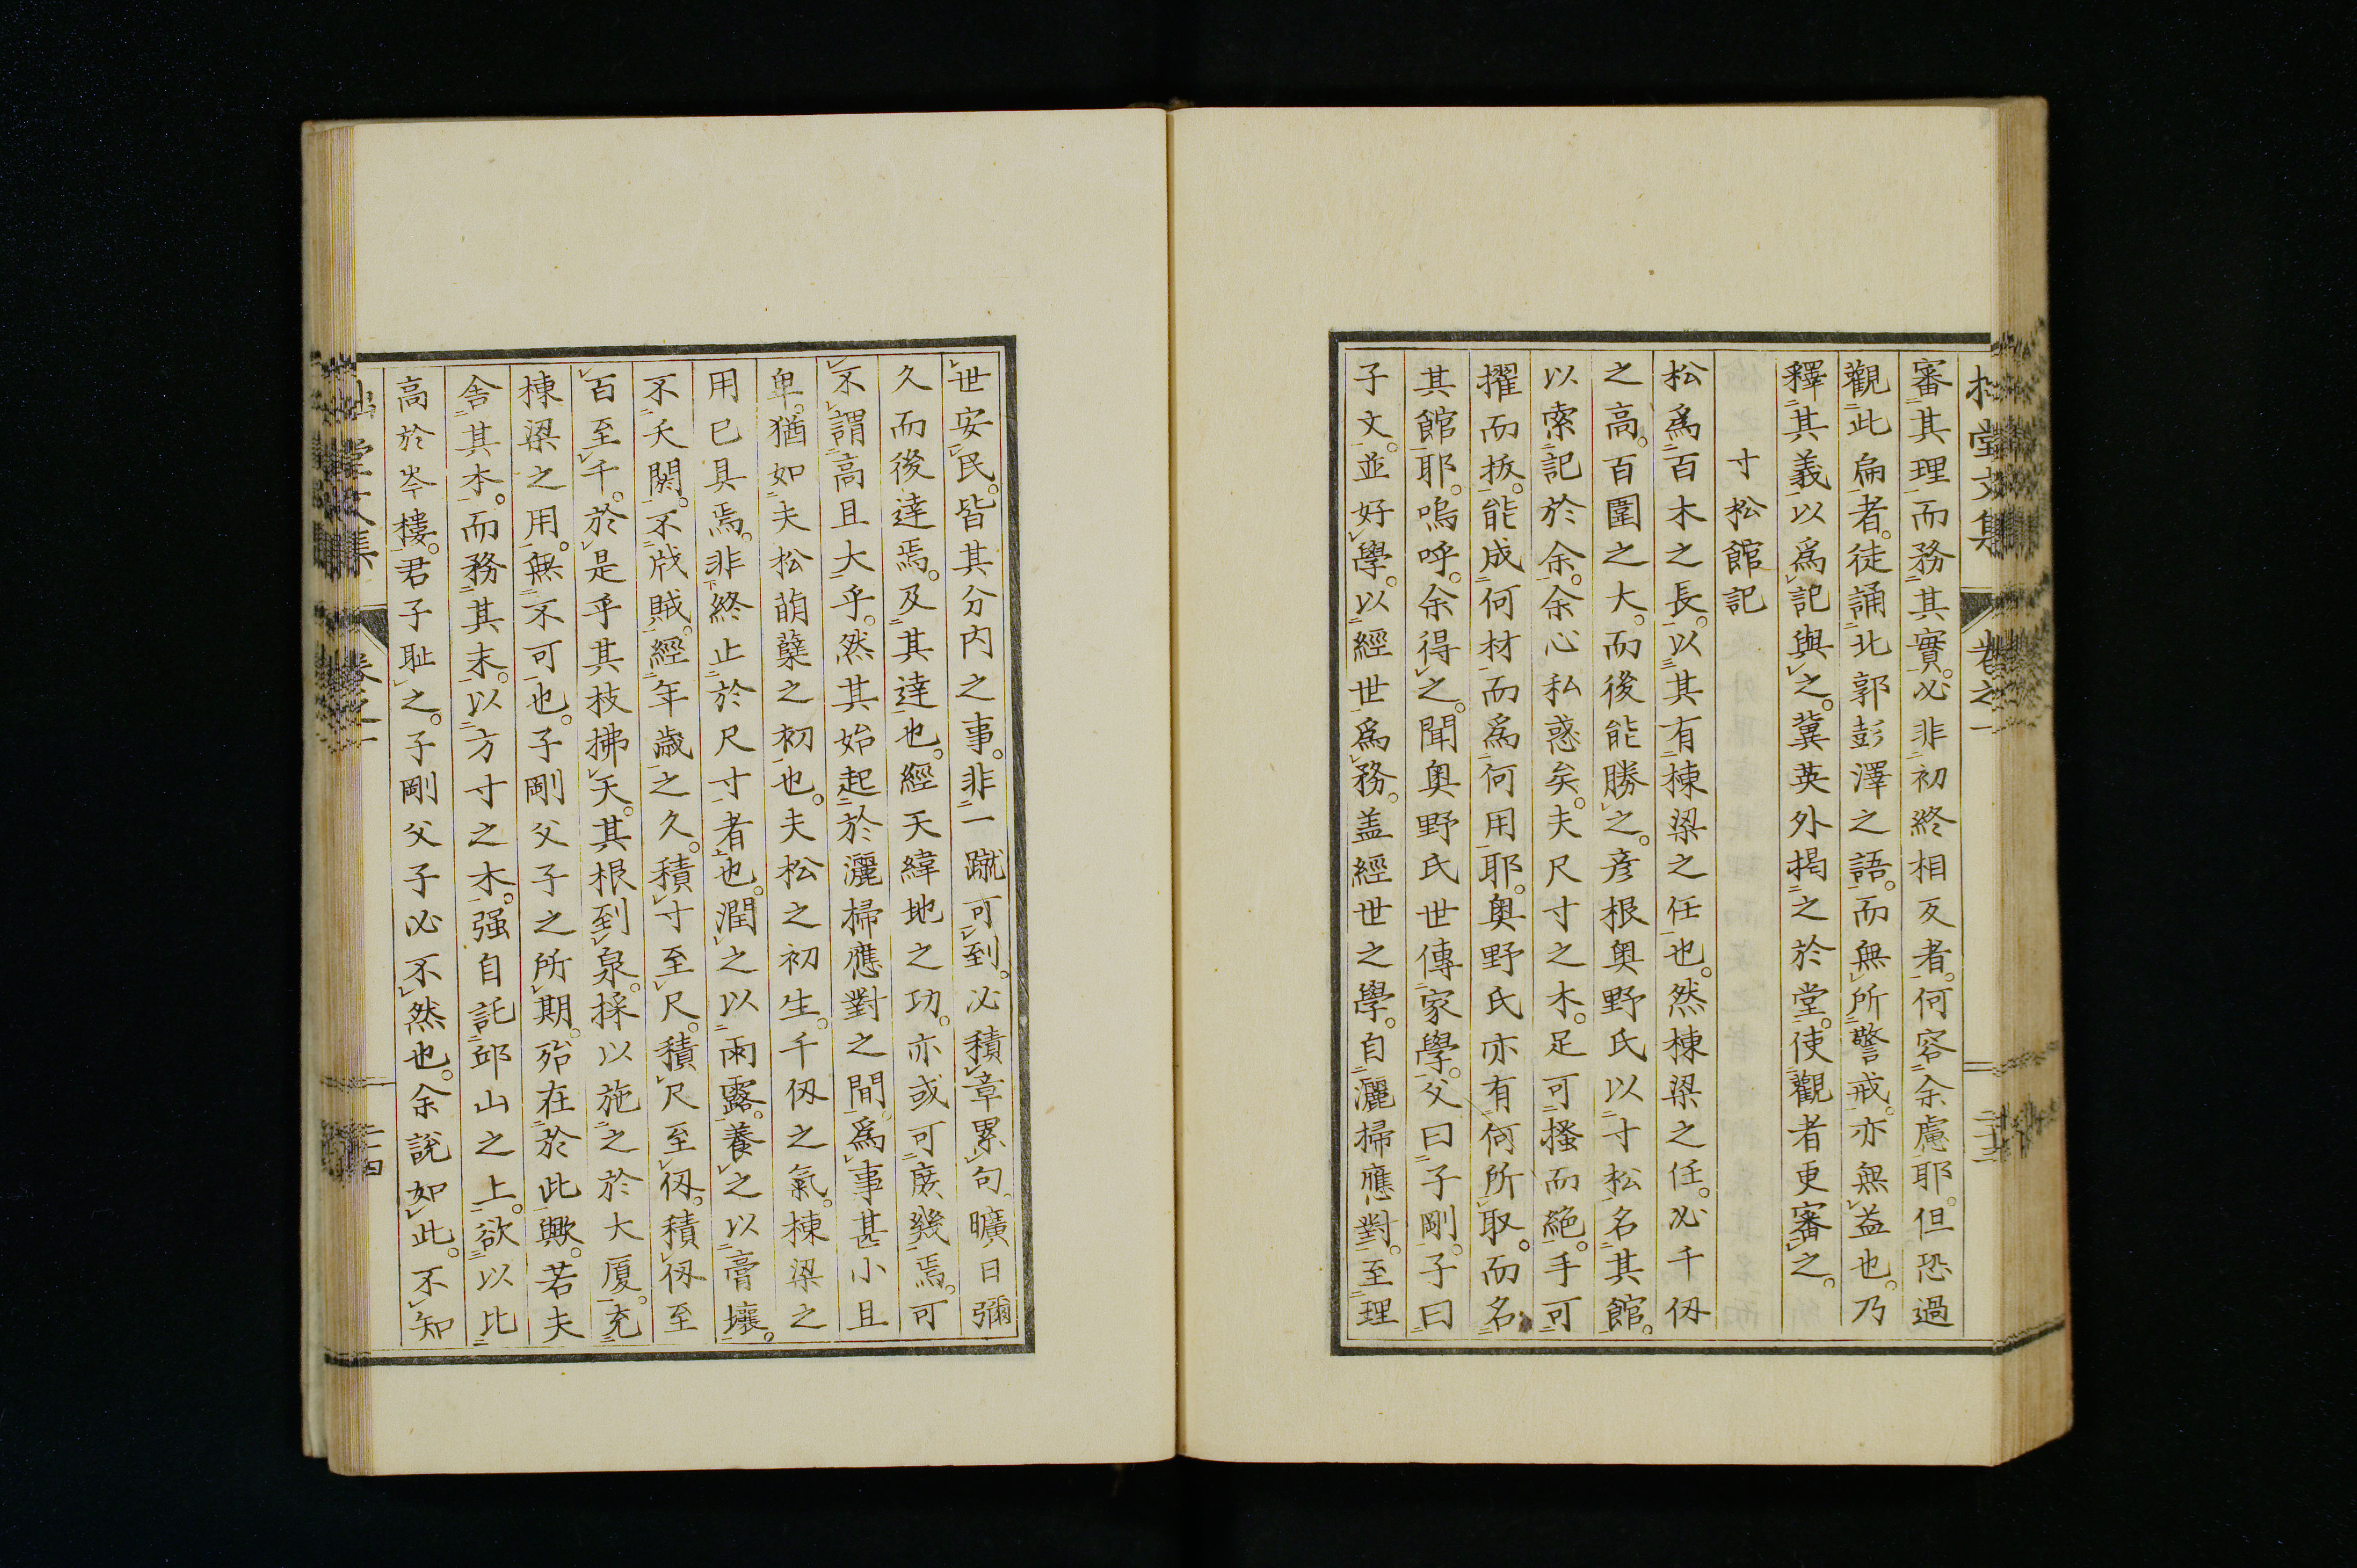 審其理而務其實。必非初終相反者。何容余慮耶。但恐過
觀此扁者。徒誦北郭彭澤之語。而無所警戒。亦無益也。乃
釋其義以爲記與之。冀英外揭之於堂。使觀者更審之。
寸松館記
松爲百木之長。以其有棟梁之任也。然棟梁之任。必千仭
之高。百圍之大。而後能勝之。彦根奥野氏以寸松名其館。
以索記於余。余心私惑矣。夫尺寸之木。足可搔而絶。手可
擢而抜。能成何材而爲何用耶。奥野氏亦有何所取。而名
其館耶。嗚呼。余得之。聞奥野氏世傳家學。父曰子剛。子曰
子文。並好學。以經世爲務。盖經世之學。自灑掃應對。至理
世安民。皆其分内之事。非一蹴可到。必積章累句。曠日彌
久而後達焉。及其達也。經天緯地之功。亦或可庶幾焉。可
不謂高且大乎。然其始起於灑掃應對之間。爲事甚小且
卑。猶如夫松萠蘖之初也。夫松之初生。千仭之氣。棟梁之
用已具焉。非終止於尺寸者也。潤之以雨露。養之以膏壤。
不夭閼。不戕賊。經年歳之久。積寸至尺。積尺至仭。積仭至
百至千。於是乎其枝拂天。其根到泉。採以施之於大厦。充
棟梁之用。無不可也。子剛父子之所期。殆在於此歟。若夫
舎其本。而務其末。以方寸之木。强自託邱山之上。欲以比
高於岑樓。君子耻之。子剛父子必不然也。余說如此。不知
堂文集
卷之一
二十三
堂文集
卷之一
二十四